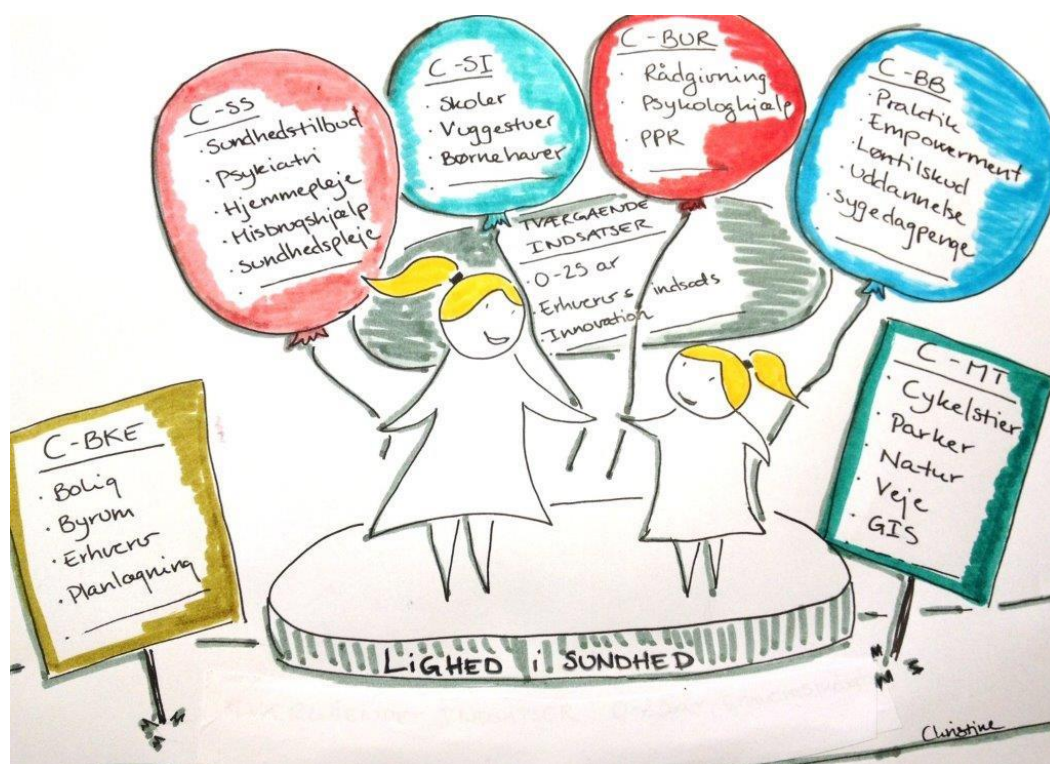 C-SS
· Sundhedstilbud
· Psykiatri
· Hjemmepleje
· Misbrugshjælp
· Sundhedspleje
C-SI
· Skoler
· Vuggestuer
· Børnehaver
C-BUR
· Rådgivning
· Psykologhjælp
· PPR
C-BB
· Praktik
· Empowerment
· Løntilskud
· Uddannelse
· Sygedagpenge
TVÆRGAENDE
INDSATSER
· 0-25 ar
· Erhvervsindsats
Innovation
C-BKE
· Bolig
· Byrum
· Erhverv
· Planlægning
C-MT
· Cykelstier
· Parker
· Natur
· Veje
· GIS
LIGHED i SUNDHED
Christine